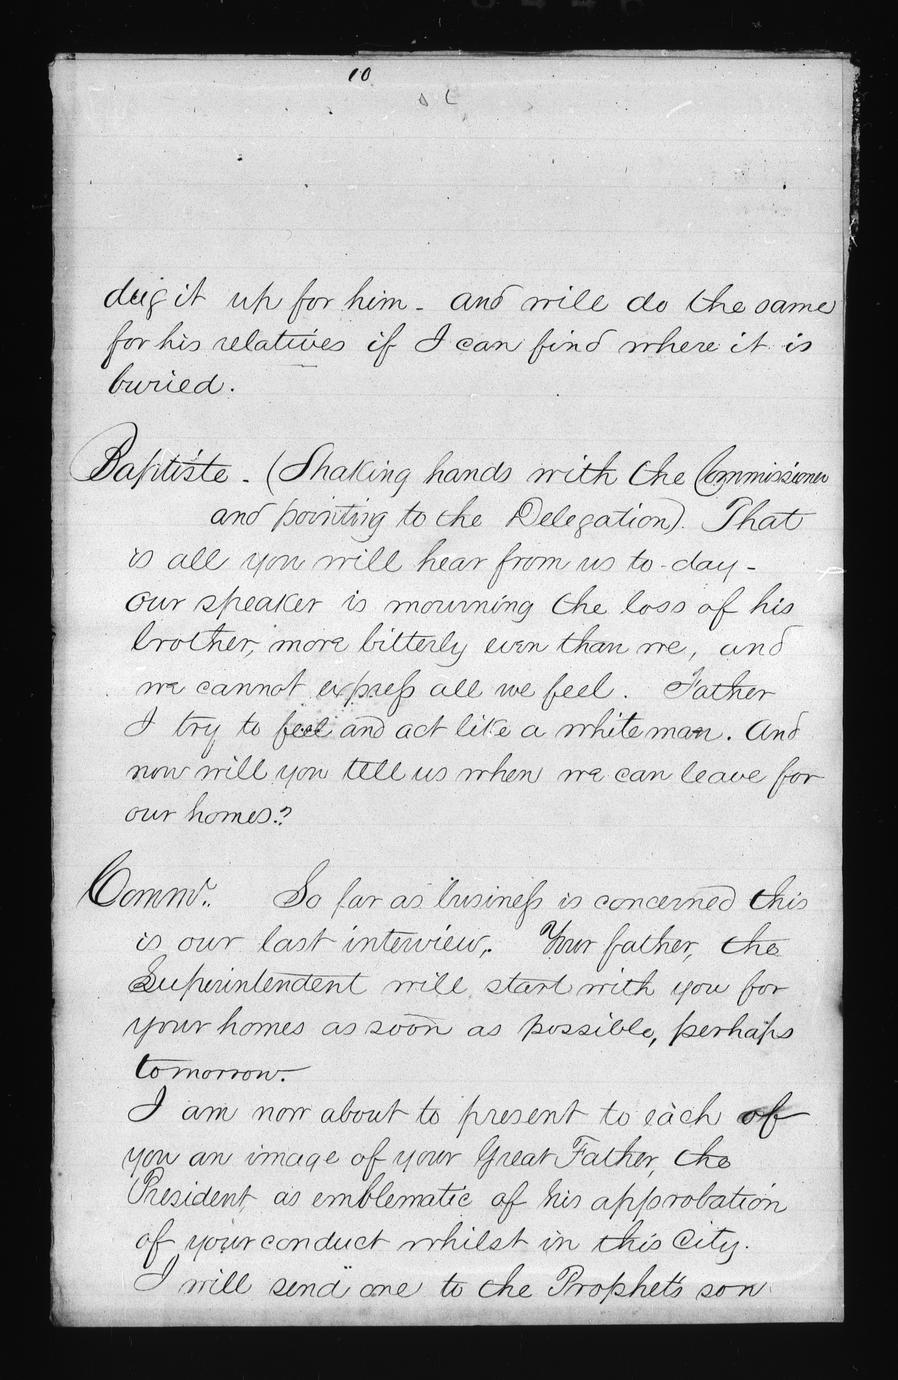 10
duig it up for him - and will do the same
for his relatives if I can find where it is
buried.
Baptiste - (Shaking hands with the Commissioner
and pointing to the Delegation). That
is all you will hear from us to-day -
our speaker is mourning the loss of his
brother, more bitterly even than we, and
we cannot express all we feel. Father
I try to feel and act like a white man. And
now will you tell us when we can leave for
our homes?
Commr. So far as business is concerned this
is our last interview. Your father, the
Superintendent will start with you for
your homes as soon as possible, perhaps
tomorrow.
I am now about to present to each of
you an image of your Great Father, the
President, as emblematic of his approbation
of your conduct whilst in this City.
I will send one to the Prophet's son